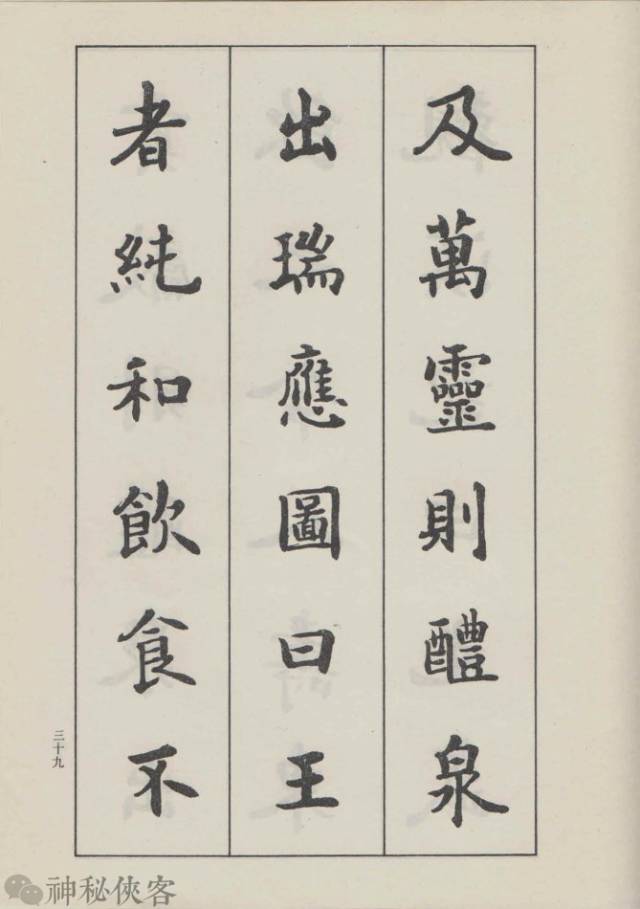 及萬靈則醴泉
出瑞應圖曰王
者純和飲食不
三十九
神秘俠客